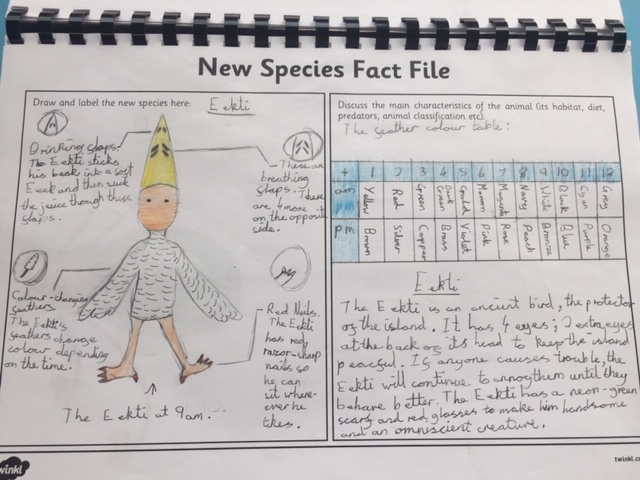 New Species Fact File
Draw and label the new species here: Eekti
Drinking flaps:
The Eekti sticks
his beak into a soft
Eeek and then suck
the juice through these
flaps.
These are
breathing
flaps. There
are 4 more
on the opposite
side.
Colour-changing
feathers
The Eekti's
feathers change
colour depending
on the time.
Red Nails.
The Eekti
has red,
razor-sharp
nails so
he can
sit where-
ever he
likes.
The Eekti at 9am.
Discuss the main characteristics of the animal (its habitat, diet,
predators, animal classification etc).
The feather colour table:
+ 1 2 3 4 5 6 7 8 9 10 11 12
am Yellow Red Green Dark Green Gold Maroon Magenta Navy White Black Cyan Grey
pm Brown Silver Copper Brass Violet Pink Rose Peach Bronze Blue Purple Orange
Eekti
The Eekti is an ancient bird, the protector
of the island. It has 4 eyes; 2 extra eyes
at the back of its head to keep the island
peaceful. If anyone causes trouble, the
Eekti will continue to annoy them until they
behave better. The Eekti has a neon-green
scarf and red glasses to make him handsome
and an omniscient creature.
twinkl
twinkl.co